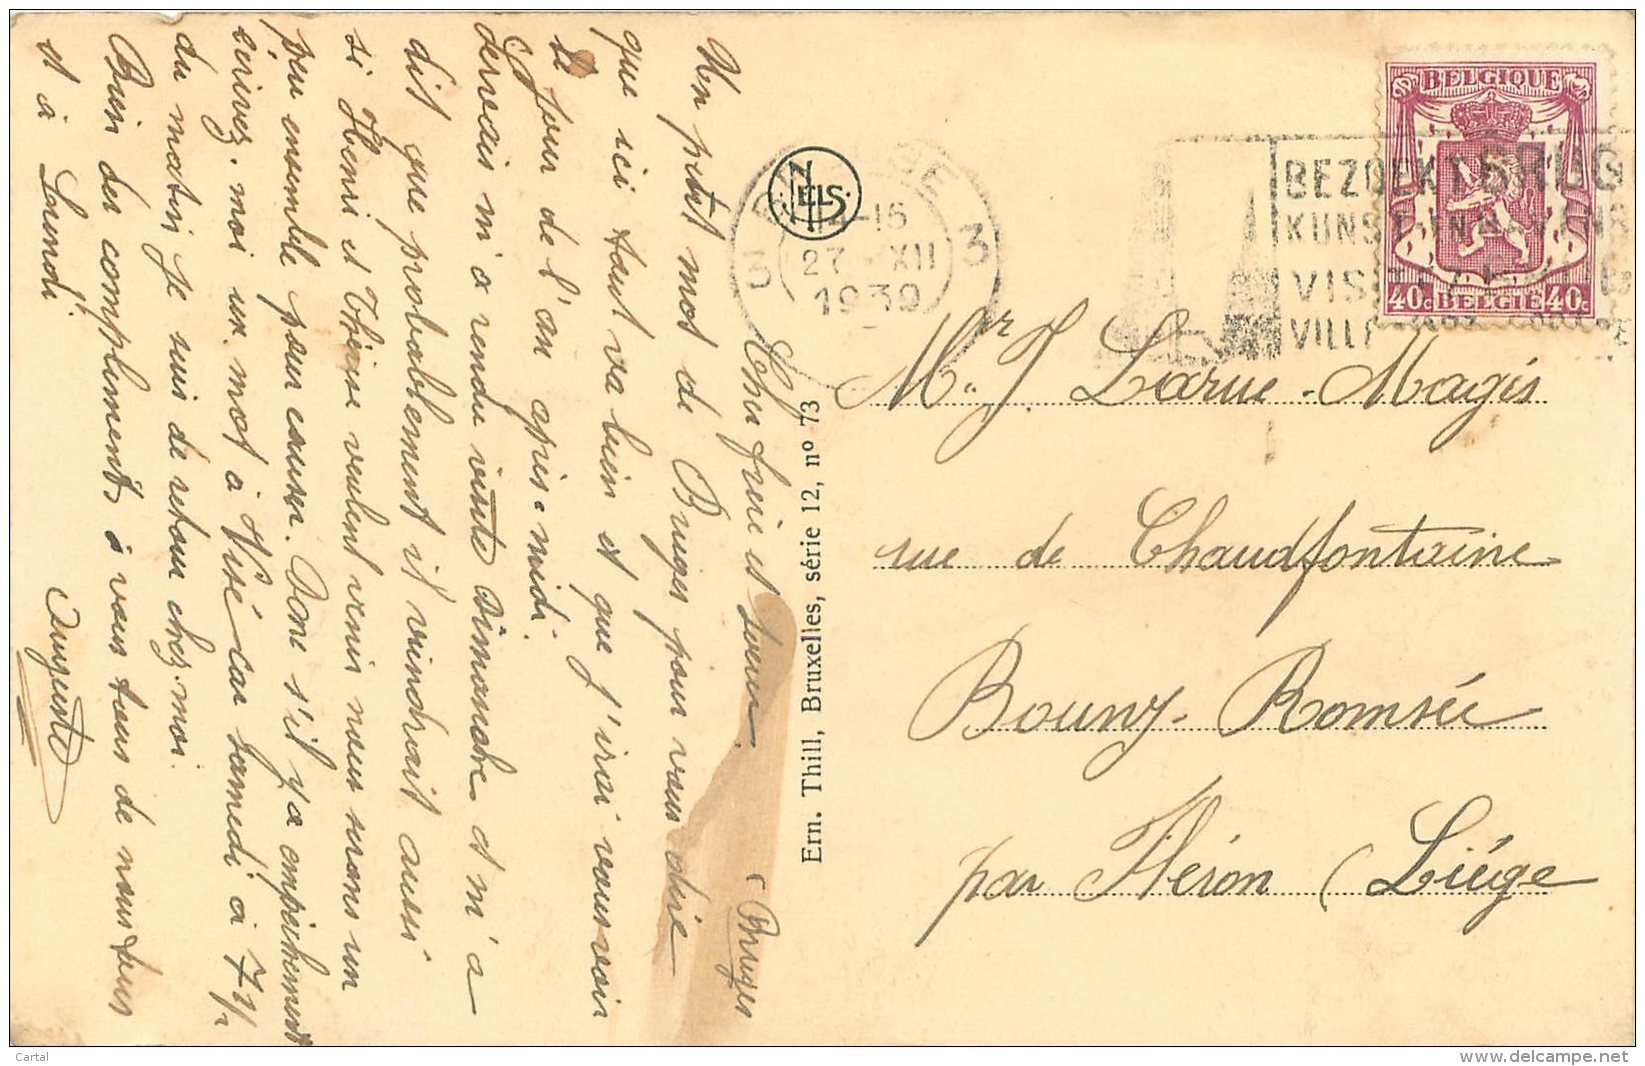 (Bruges
Cher frère et soeur.
Un petit mot de Bruges pour vous dire
que ici tout va bien et que j'irai vous voir
le jour de l'an après-midi.
Gervais m'a rendu visite Dimanche et m'a
dit que probablement il viendrait aussi
si Henri et Thérèse veulent venir nous serons un
peu ensemble pour causer. Donc s'il y a empêchement
écrivez-moi un mot à Visé car samedi à 7 1/2
du matin je suis de retour chez-moi.
Bien des compliments à vous tous de nous tous
et à Lundi
Auguste
NELS
Ern. Thill, Bruxelles, série 12, nº 73
BRUGGE
3 3
-16
27 - XII
1939
BEZOEKT BRUG
KUNST-IN HAVENS
VISITEZ
VILLE
BELGIQUE
40c BELGIË 40c
Mr J. Larue-Magis
rue de Chaudfontaine
Bouny-Romsée
par Fléron (Liége
Cartal
http://www.delcampe.net